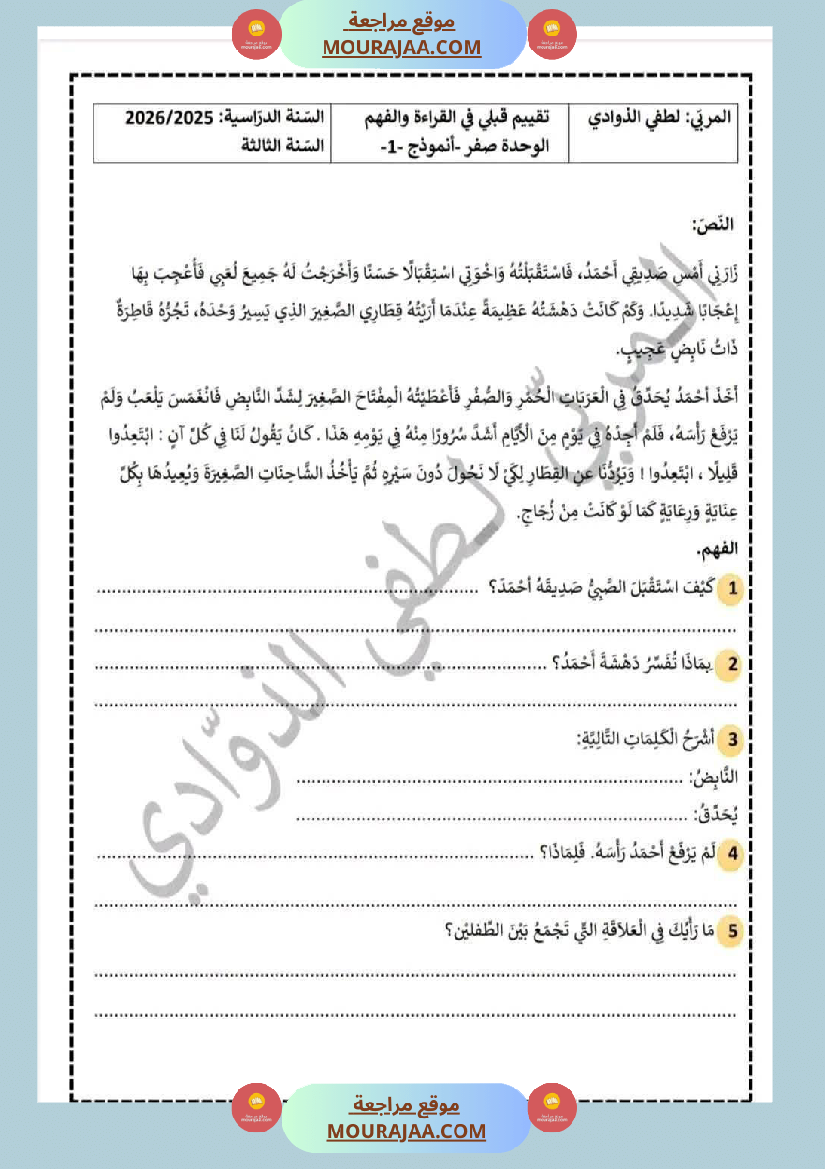 موقع مراجعة
MOURAJAA.COM
المربّي: لطفي الذوادي
تقييم قبلي في القراءة والفهم
السّنة الدرّاسية: 2026/2025
الوحدة صفر -أنموذج -1-
السّنة الثالثة
النّصّ:
زَارَنِي أَمْسِ صَدِيقِي أَحْمَدُ، فَاسْتَقْبَلْتُهُ وَاخْوَتِي اسْتِقْبَالًا حَسَنًا وَأَخْرَجْتُ لَهُ جَمِيعَ لُعَبِي فَأُعْجِبَ بِهَا
إِعْجَابًا شَدِيدًا. وَكَمْ كَانَتْ دَهْشَتُهُ عَظِيمَةً عِنْدَمَا أَرَيْتُهُ قِطَارِي الصَّغِيرَ الذِي يَسِيرُ وَحْدَهُ، تَجُرُّهُ قَاطِرَةٌ
ذَاتُ نَابِضٍ عَجِيبٍ.
أَخَذَ أحْمَدُ يُحَدِّقُ فِي الْعَرَبَاتِ الْحُمْرِ وَالصُّفْرِ فَأَعْطَيْتُهُ الْمِفْتَاحَ الصَّغِيرَ لِشَدِّ النَّابِضِ فَانْغَمَسَ يَلْعَبُ وَلَمْ
يَرْفَعْ رَأْسَهُ، فَلَمْ أَجِدْهُ فِي يَوْمٍ مِنَ الْأَيَّامِ أَشَدَّ سُرُورًا مِنْهُ فِي يَوْمِهِ هَذَا . كَانُ يَقُولُ لَنَا فِي كُلِّ آنٍ : ابْتَعِدُوا
قَلِيلًا ، ابْتَعِدُوا ! وَيَرُدُّنَا عَنِ القِطَارِ لِكَيْ لَا نَحُولَ دُونَ سَيْرِهِ ثُمَّ يَأْخُذُ الشَّاحِنَاتِ الصَّغِيرَةَ وَيُعِيدُهَا بِكُلِّ
عِنَايَةٍ وَرِعَايَةٍ كَمَا لَوْ كَانَتْ مِنْ زُجَاجٍ.
الفهم.
1 كَيْفَ اسْتَقْبَلَ الصَّبِيُّ صَدِيقَهُ أحْمَدَ؟ ........................................
........................................
2 بِمَاذَا تُفَسِّرُ دَهْشَةَ أَحْمَدُ؟ ........................................
........................................
3 أشْرَحُ الْكَلِمَاتِ التَّالِيَّةِ:
النَّابِضُ: ........................................
يُحَدِّقُ: ........................................
4 لَمْ يَرْفَعْ أَحْمَدُ رَأْسَهُ. فَلِمَاذَا؟ ........................................
........................................
5 مَا رَأْيُكَ فِي الْعَلاَقَةِ التِّي تَجْمَعُ بَيْنَ الطِّفليْن؟
........................................
........................................
المربّي لطفي الذوّادي
موقع مراجعة
MOURAJAA.COM